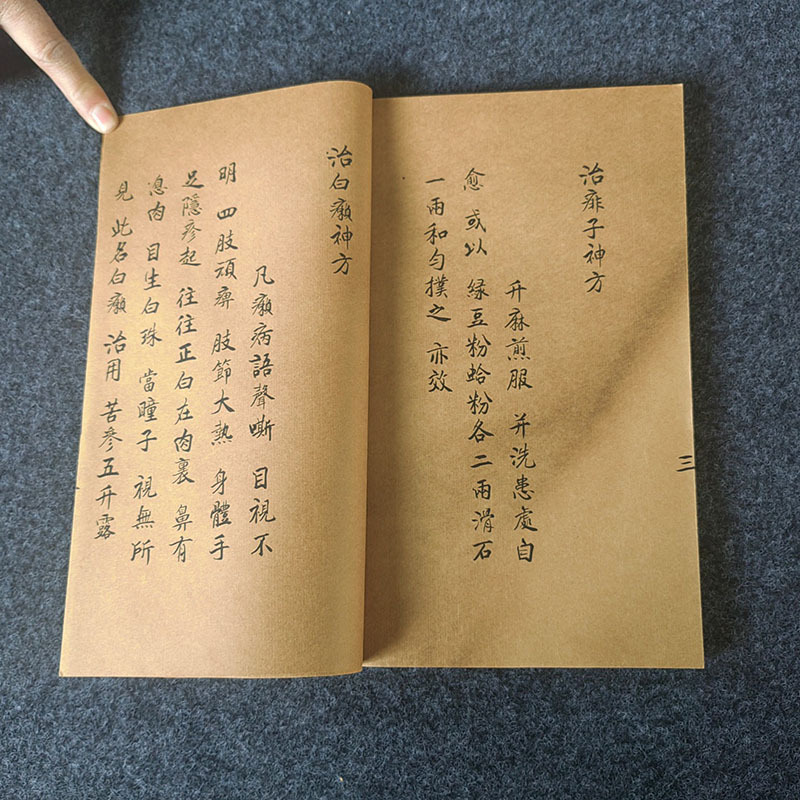 治痱子神方
升麻煎服 并洗患處自
愈 或以 緑豆粉蛤粉各二兩滑石
一兩和勻撲之 亦效
三
治白癩神方
凡癩病語聲嘶 目視不
明 四肢頑痹 肢節大熱 身體手
足隱疹起 往往正白在肉裏 鼻有
息肉 目生白珠 當瞳子 視無所
見 此名白癩 治用 苦參五升露